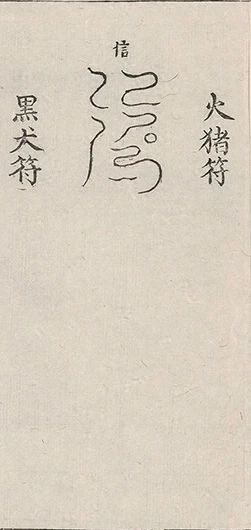 火猪符
信
黑犬符